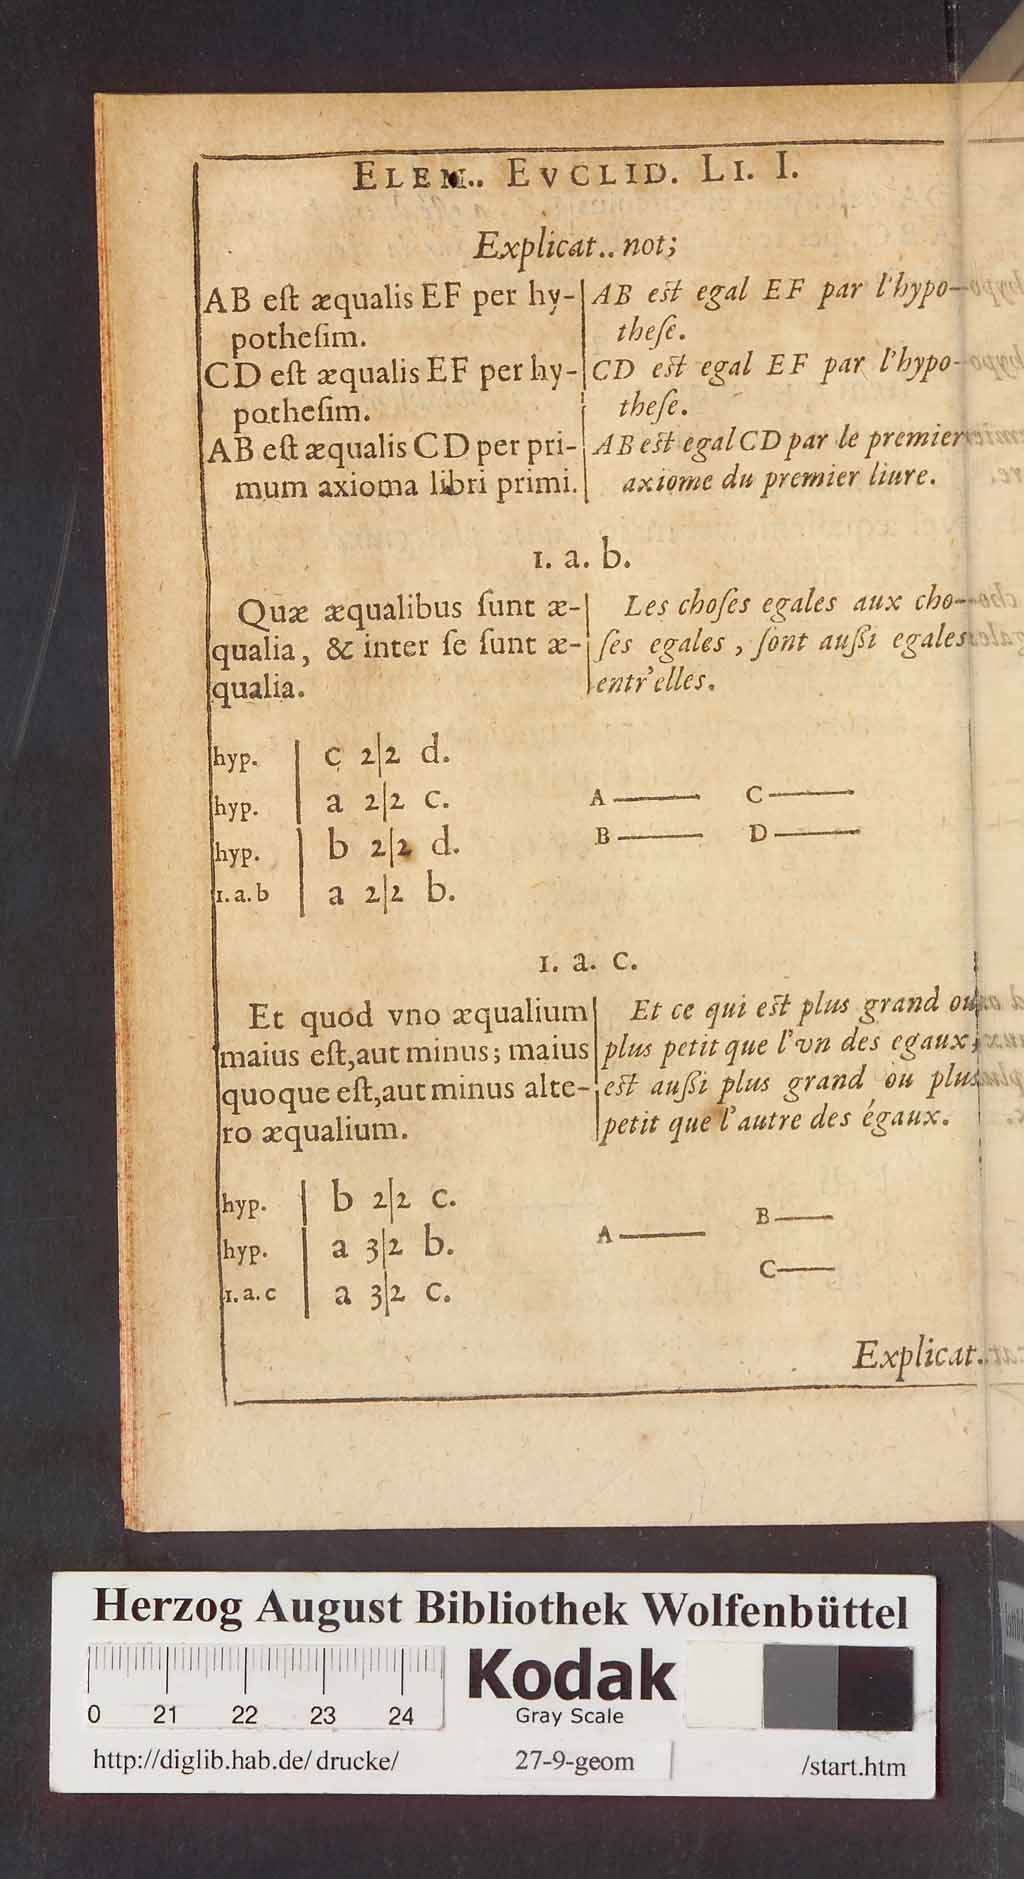 ELEM.. EVCLID. LI. I.
Explicat.. not;
AB eſt æqualis EF per hy-
potheſim.
CD eſt æqualis EF per hy-
potheſim.
AB eſt æqualis CD per pri-
mum axioma libri primi.
AB est egal EF par l'hypo-
theſe.
CD est egal EF par l'hypo-
theſe.
AB est egal CD par le premier
axiome du premier liure.
1. a. b.
Quæ æqualibus ſunt æ-
qualia, & inter ſe ſunt æ-
qualia.
Les choſes egales aux cho-
ſes egales, ſont auſſi egales
entr'elles.
hyp. | c 2|2 d.
hyp. | a 2|2 c.
hyp. | b 2|2 d.
1. a. b | a 2|2 b.
A C
B D
1. a. c.
Et quod vno æqualium
maius eſt, aut minus; maius
quoque eſt, aut minus alte-
ro æqualium.
Et ce qui est plus grand ou
plus petit que l'vn des egaux,
est auſſi plus grand ou plus
petit que l'autre des égaux.
hyp. | b 2|2 c.
hyp. | a 3|2 b.
1. a. c | a 3|2 c.
B
A
C
Explicat.
Herzog August Bibliothek Wolfenbüttel
0 21 22 23 24
Kodak
Gray Scale
http://diglib.hab.de/ drucke/ 27-9-geom /start.htm